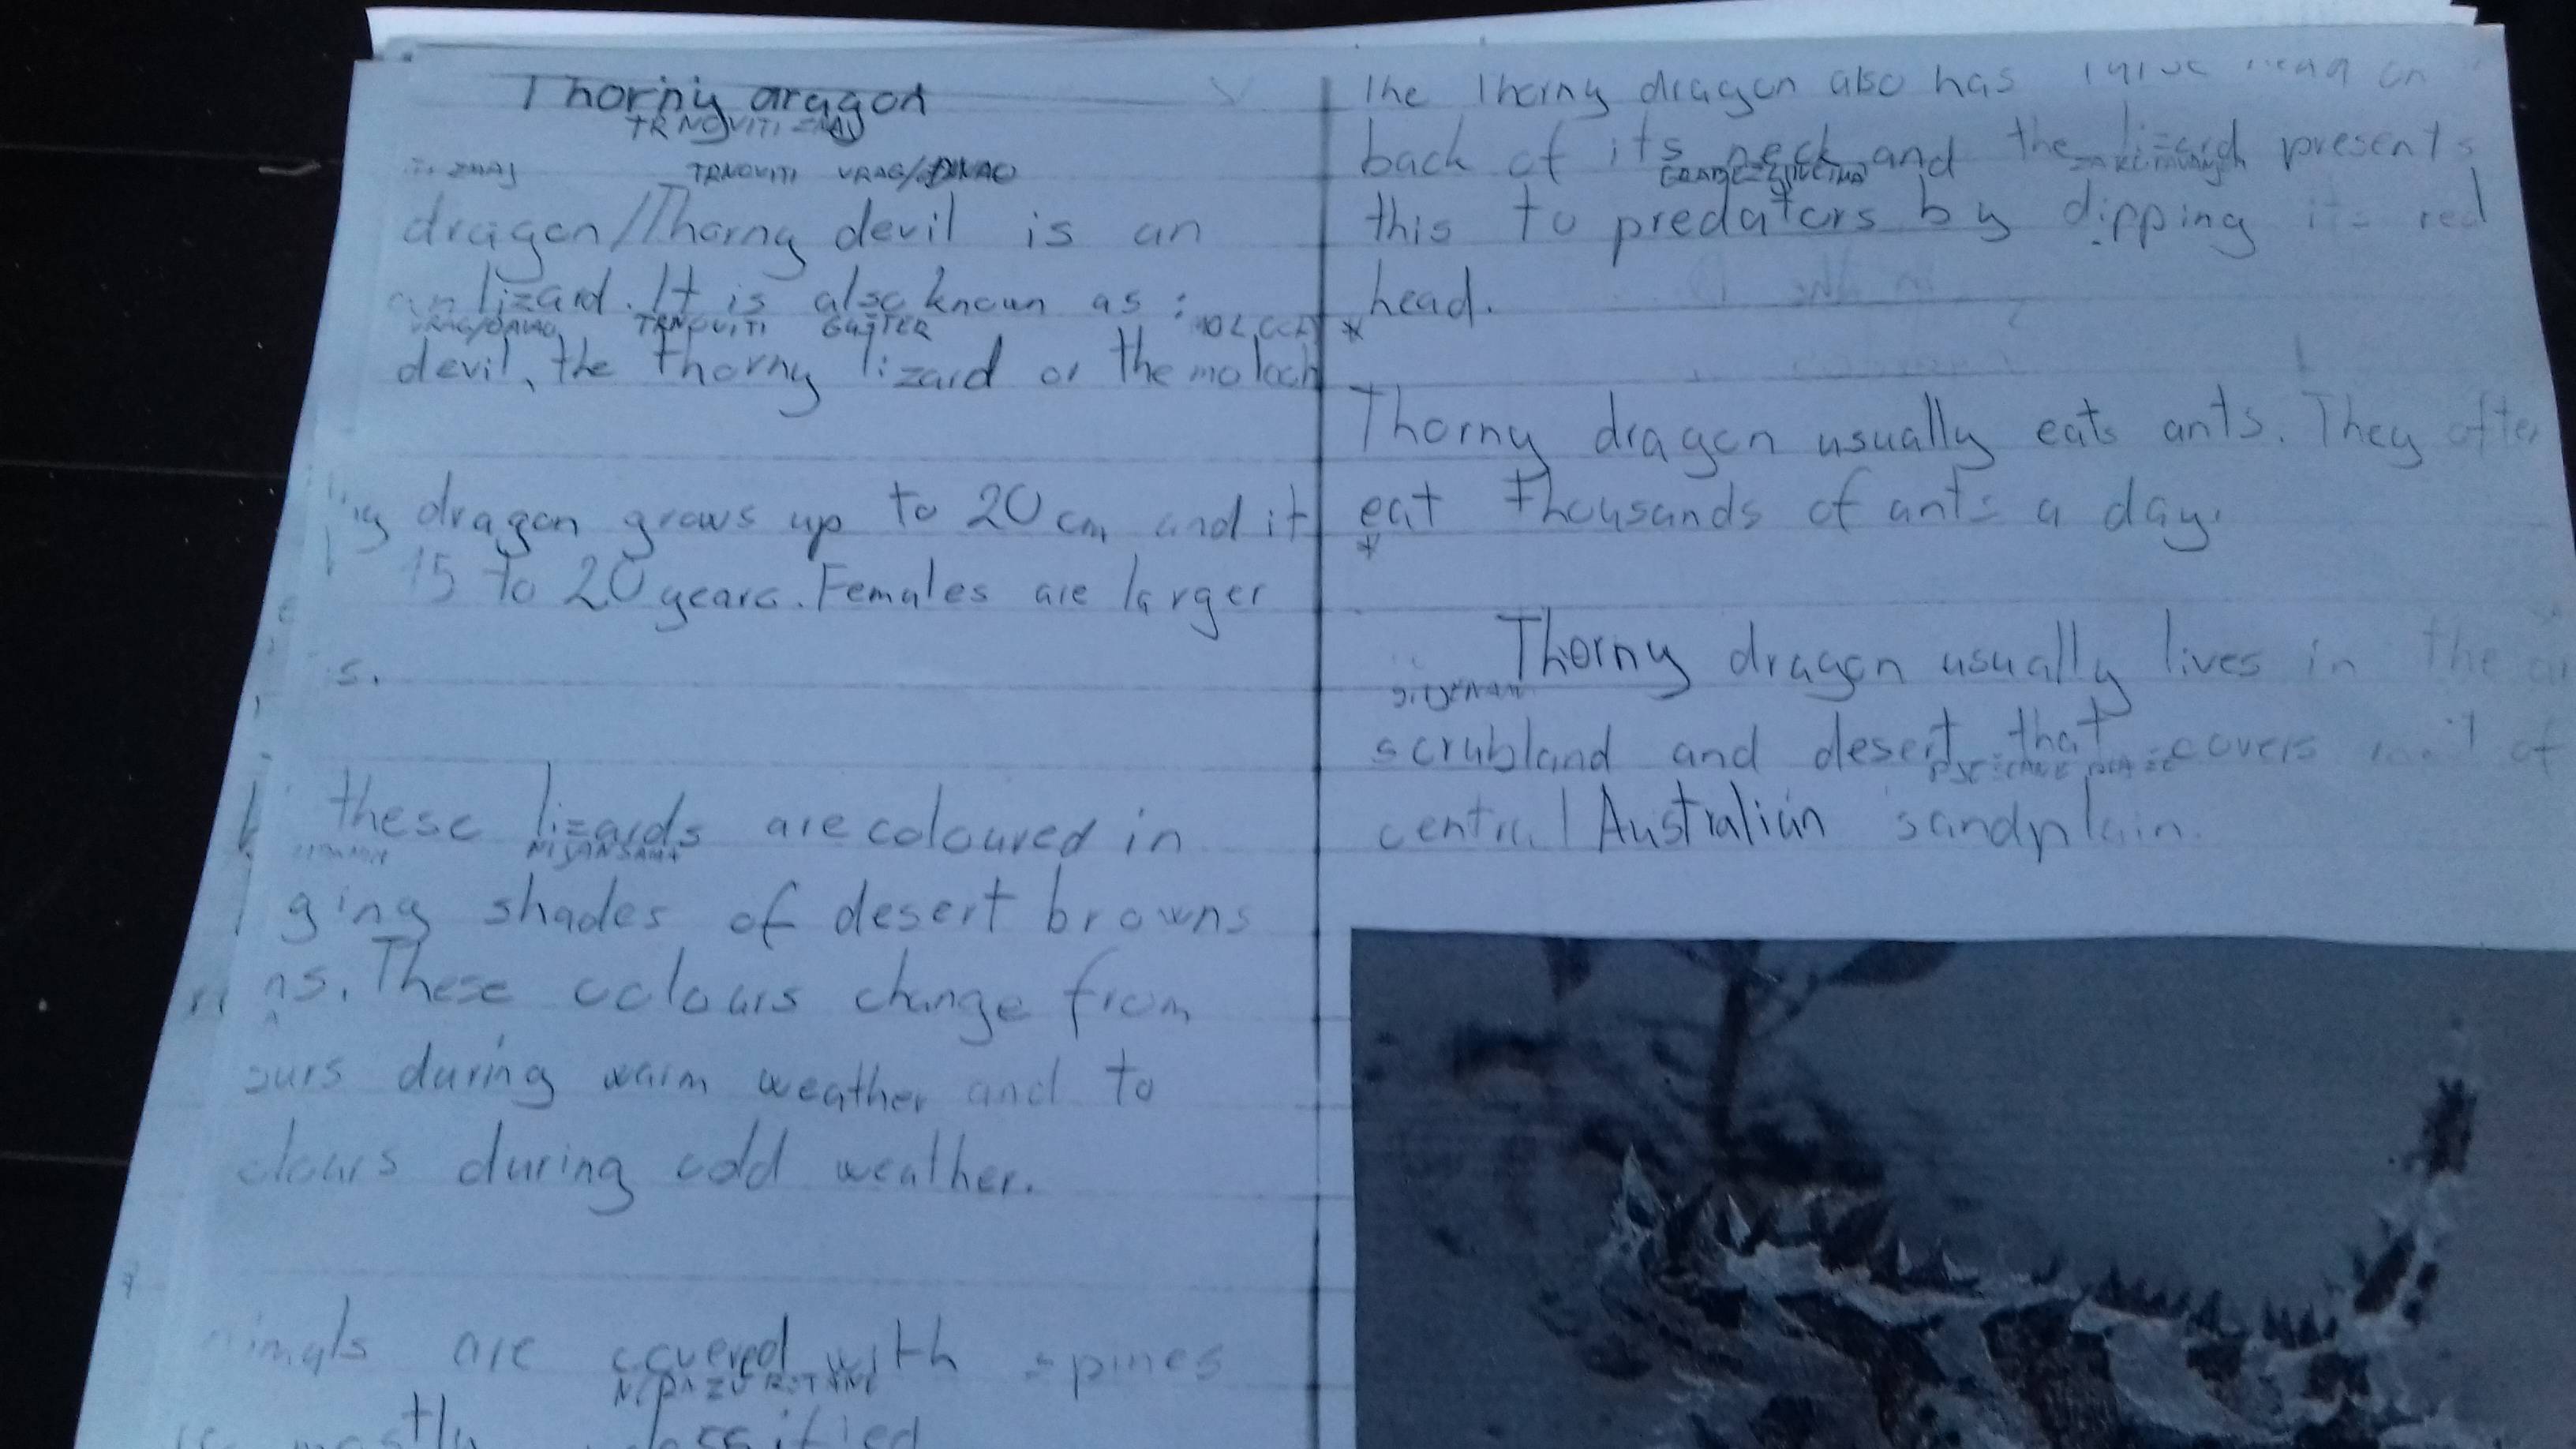 Thorny dragon
TRNOVITI ZMAJ
ZMAJ TRNOVITI VRAG/ĐAVAO
dragon/Thorny devil is an
lizard. It is also known as:
VRAG/ĐAVAO TRNOVITI GUŠTER MOLOCH *
devil, the thorny lizard or the moloch
dragon grows up to 20 cm and it
15 to 20 years. Females are larger
s.
these lizards are coloured in
NIJANSAMA
ging shades of desert browns
ns. These colours change from
ours during warm weather and to
olours during cold weather.
nimals are covered with spines
mostly classified
The Thorny dragon also has head on
back of its neck and the lizard presents
this to predators by dipping its red
head.
Thorny dragon usually eats ants. They often
eat thousands of ants a day.
*
Thorny dragon usually lives in the
scrubland and desert that covers most of
central Australian sandplain.